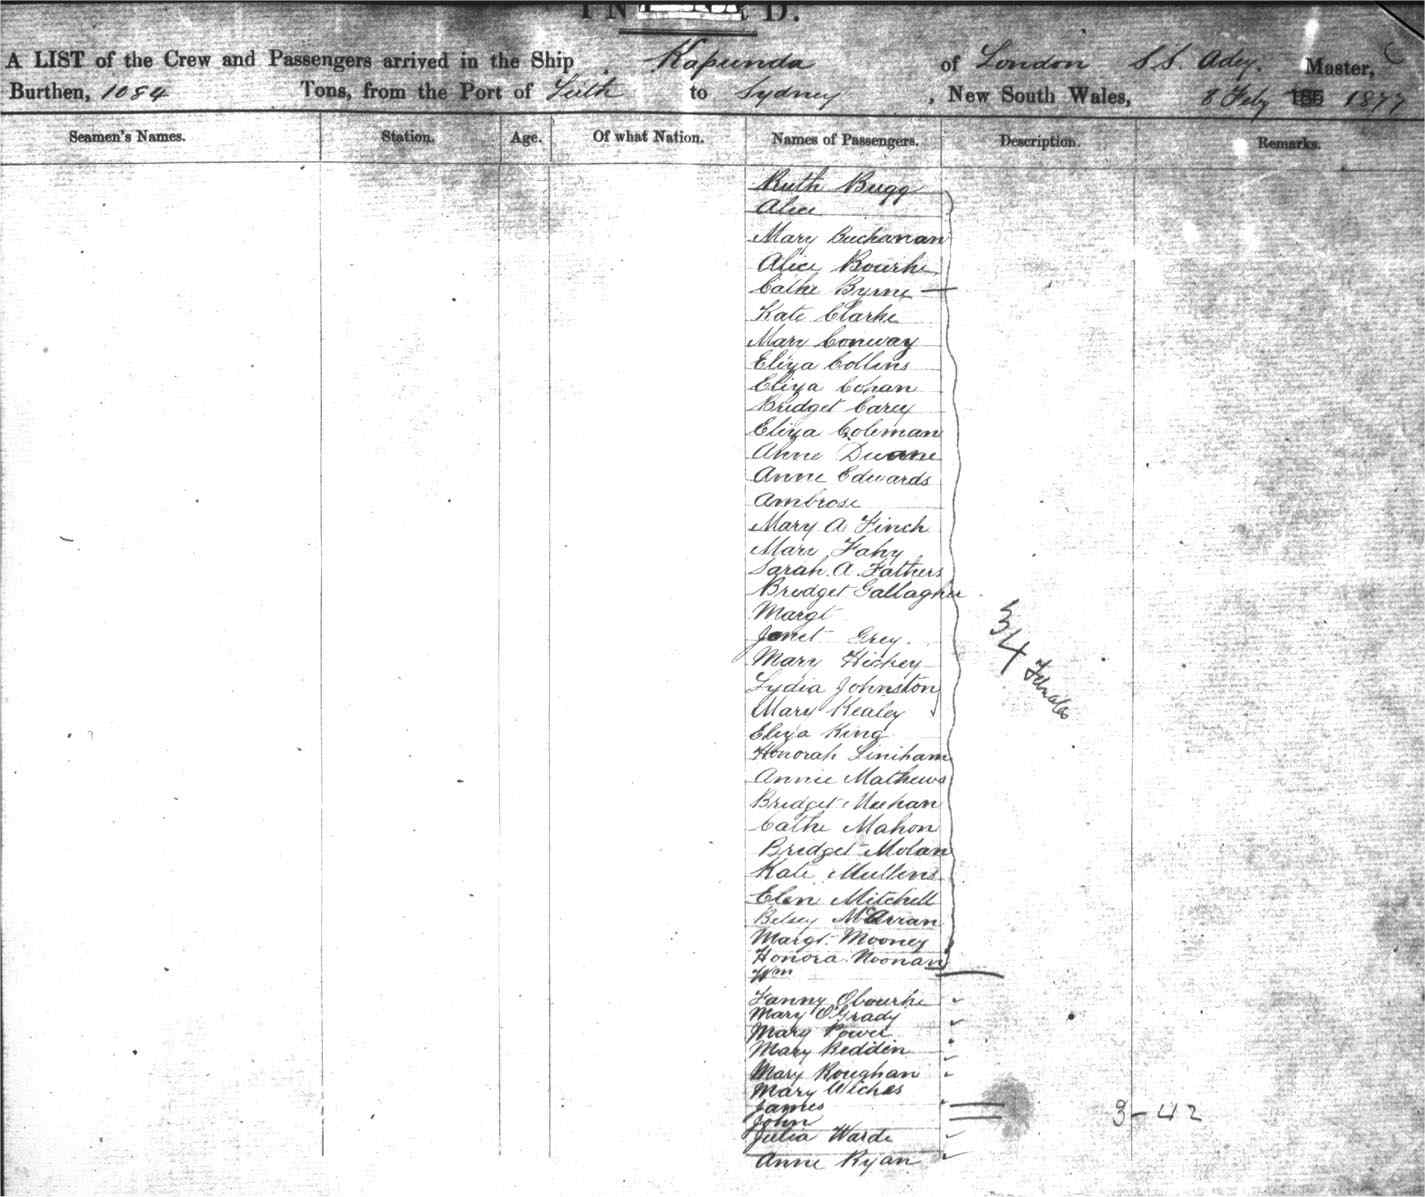 A LIST of the Crew and Passengers arrived in the Ship Kapunda of London S.S. Adey. Master,
Burthen, 1084 Tons, from the Port of Leith to Sydney, New South Wales, 8 Feby 185 1877
Seamen's Names. Station. Age. Of what Nation. Names of Passengers. Description. Remarks.
Ruth Bugg
Alice
Mary Buchanan
Alice Bourke
Cathe Byrne
Kate Clarke
Mary Conway
Eliza Collins
Eliza Cohan
Bridget Carey
Eliza Coleman
Anne Duane
Anne Edwards
Ambrose
Mary A Finch
Mary Fahy
Sarah A. Fathers
Bridget Gallagher
Margt
Janet Grey.
Mary Hickey
Lydia Johnston
Mary Kealey
Eliza King
Honorah Liniham
Annie Mathews
Bridget Meehan
Cathe Mahon
Bridget Molan
Kate Mullins
Elen Mitchell
Betsey
Margt. Mooney
Honora Noonan
Wm
34 Females
Fanny Obourke
Mary O'Grady
Mary Power
Mary Reddin
Mary Roughan
Mary Wiches
James
John
3-42
Julia Warde
Anne Ryan